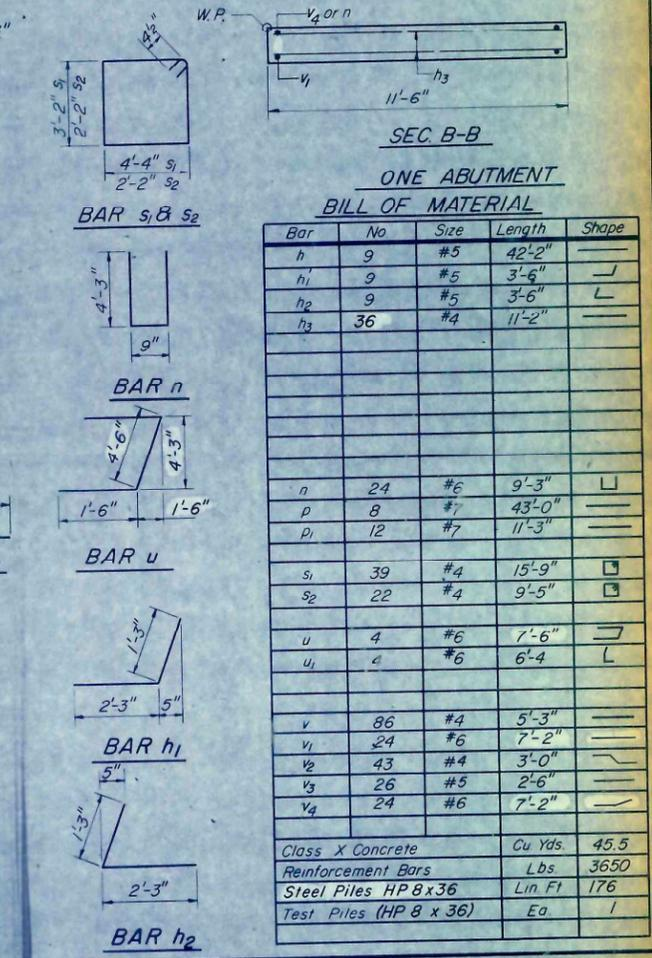 W.P.
v4 or n
v1
h3
11'-6"
SEC. B-B
4½"
3'-2" s1
2'-2" s2
4'-4" s1
2'-2" s2
BAR s1 & s2
4'-3"
9"
BAR n
4'-6"
4'-3"
1'-6" 1'-6"
BAR u
1'-3"
2'-3" 5"
BAR h1
5"
1'-3"
2'-3"
BAR h2
ONE ABUTMENT
BILL OF MATERIAL
Bar No Size Length Shape
h 9 #5 42'-2"
h1 9 #5 3'-6"
h2 9 #5 3'-6"
h3 36 #4 11'-2"
n 24 #6 9'-3"
p 8 #7 43'-0"
p1 12 #7 11'-3"
s1 39 #4 15'-9"
s2 22 #4 9'-5"
u 4 #6 7'-6"
u1 4 #6 6'-4
v 86 #4 5'-3"
v1 24 #6 7'-2"
v2 43 #4 3'-0"
v3 26 #5 2'-6"
v4 24 #6 7'-2"
Class X Concrete Cu Yds. 45.5
Reinforcement Bars Lbs. 3650
Steel Piles HP 8x36 Lin. Ft 176
Test Piles (HP 8 x 36) Ea. 1